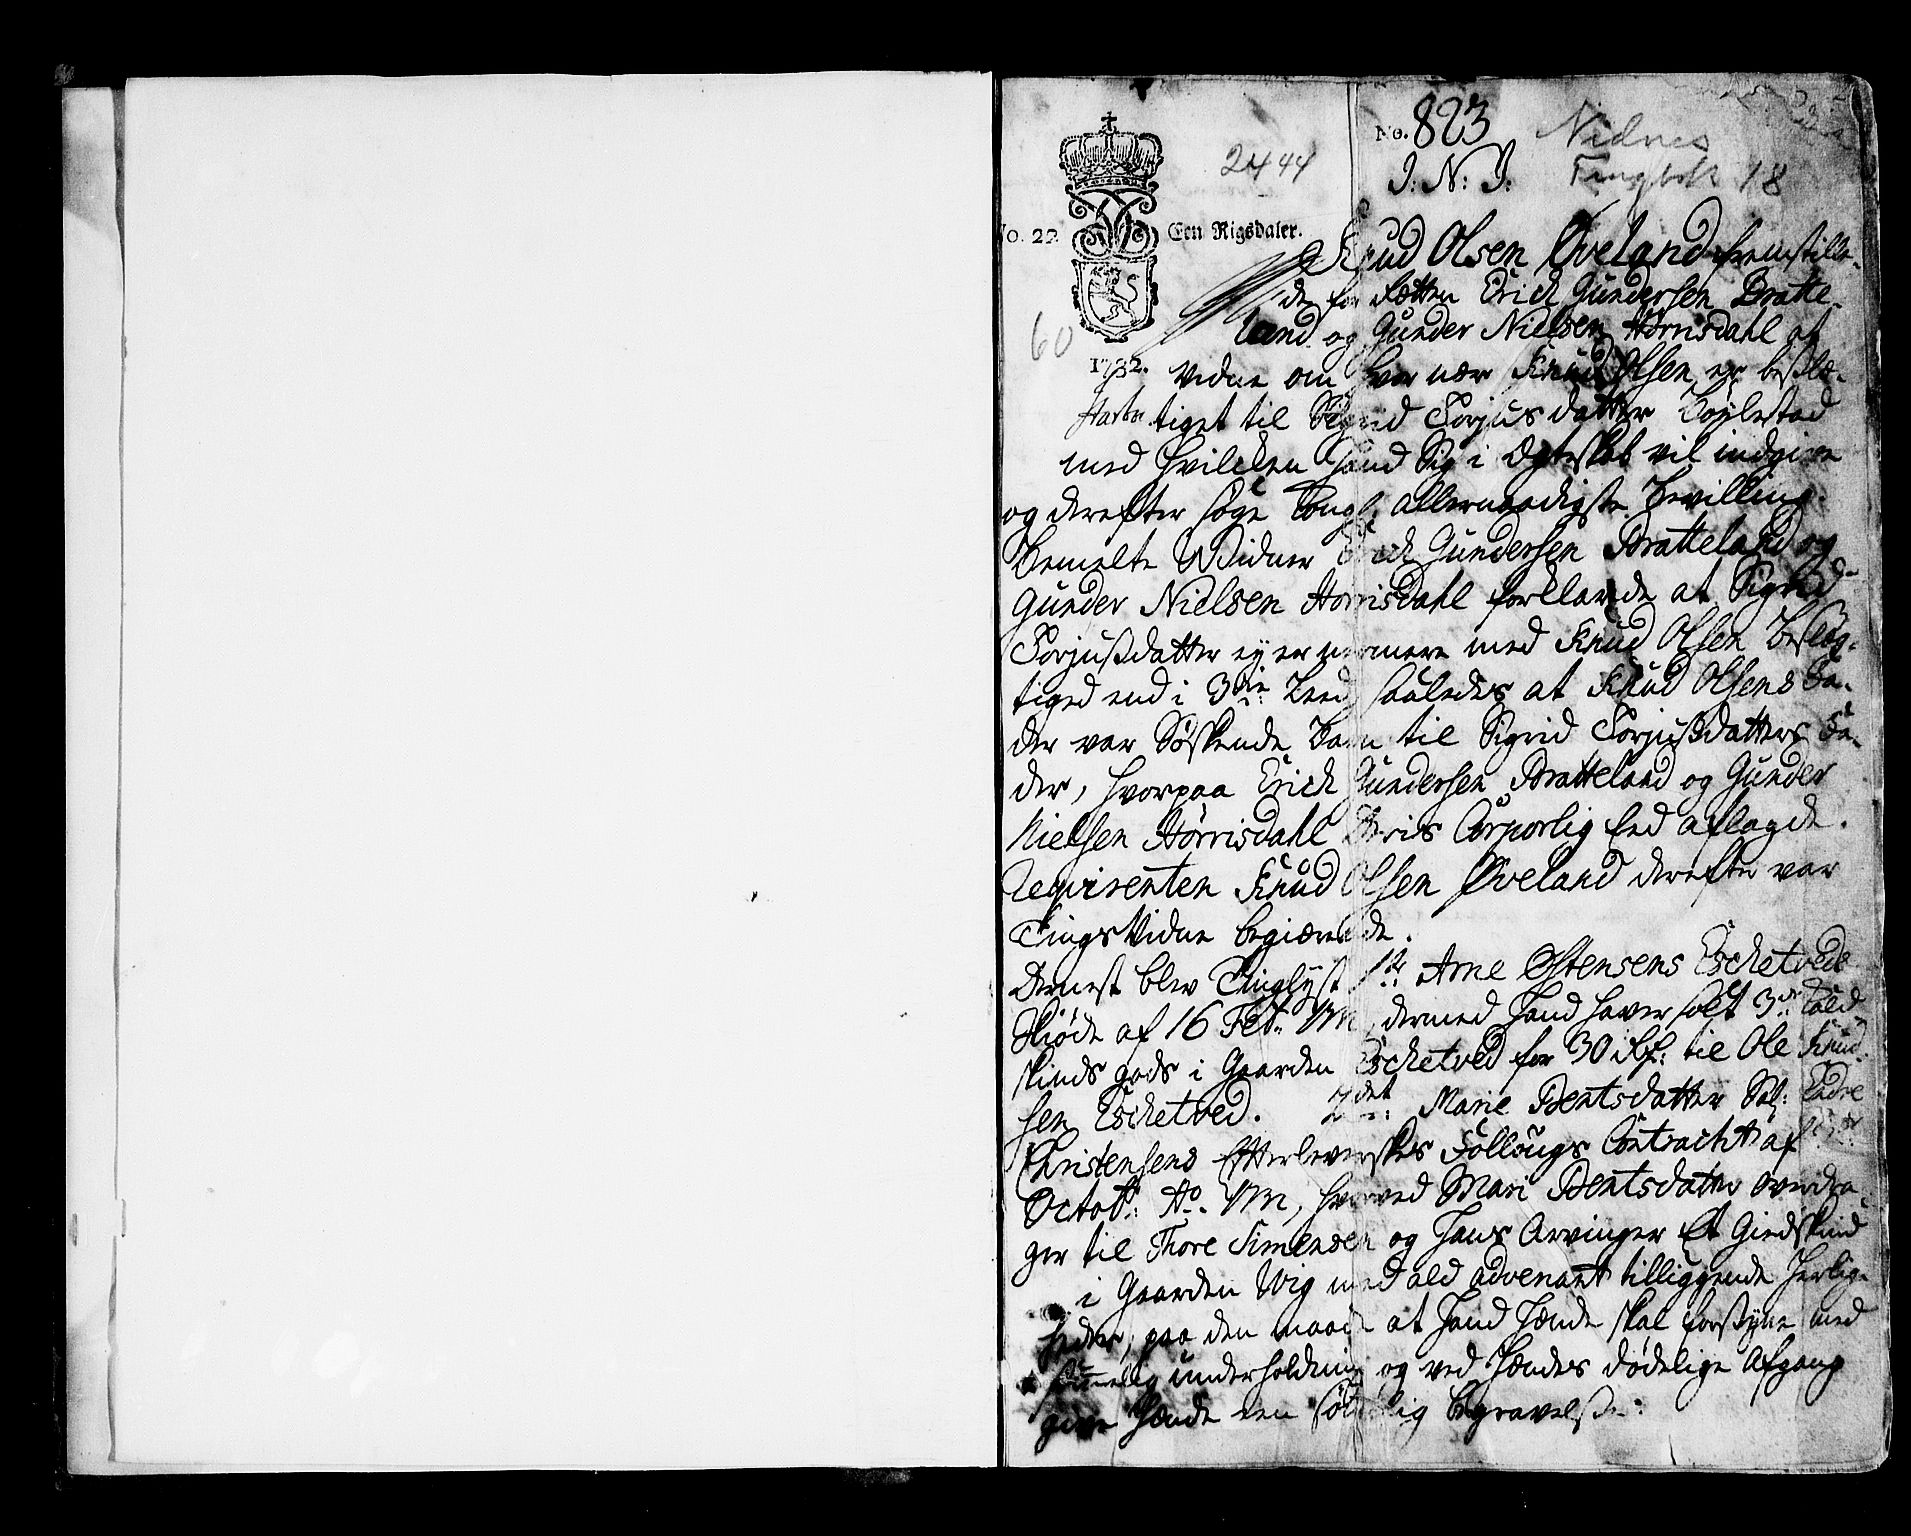 No. 823
Nidnes
2444
J: N: J:
Tingbok 18
No. 22
Een Rigsdaler.
Knud Olsen Øveland fremstille-
de for Rætten Erich Gundersen Bratte-
land og Gunder Nielsen Hørrisdahl at
60
1732.
vidne om hvor nær Knud Olsen er beslæ-
tiget til Sigrid Torjusdatter Bøylestad
med hvilcken hand Sig i Ægteskab vil indgive
og derefter søge Kongl. allernaadigste Bevilling.
Bemelte Widner Erich Gundersen Bratteland og
Gunder Nielsen Hørrisdahl forklarede at Sigrid
Torjusdatter ey er nærmere med Knud Olsen Beslæg-
tiged end i 3die Leed, saaledes at Knud Olsens Fa-
der var Søskende Barn til Sigrid Torjusdatters Fa-
der, hvorpaa Erich Gundersen Bratteland og Gunder
Nielsen Hørrisdahl deris Corporlig Eed aflagde.
Reqvirenten Knud Olsen Øveland derefter var
TingsVidne begiærende.
Dernest blev Tinglyst 1te Arne Østensens Eschetveds
Skiøde af 16 Feb: dermed hand haver solt 3de Kald
skinds gods i Gaarden Eschetved for 30 Rd: til Ole Knud-
sen Eschetved. 2det: Marie Bentsdatter Sal: Peder
Christensens Efterleverskes Follougs Contracht af
Octob: Ao. hvorved Mari Bentsdatter overdra-
ger til Thore Simensen og hans Arvinger Et Giedskind
i Gaarden Wig med ald advenant tilliggende Herlig-
heder, paa den maade at hand hende skal forsyne med
underholdning og ved hendes dødelige Afgang
give hende een sømmelig begravelse: